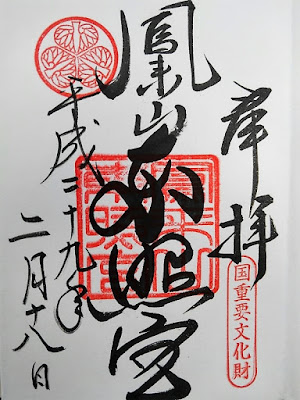 奉拝
国重要文化財
鳳来山東照宮
平成二十九年
二月十八日